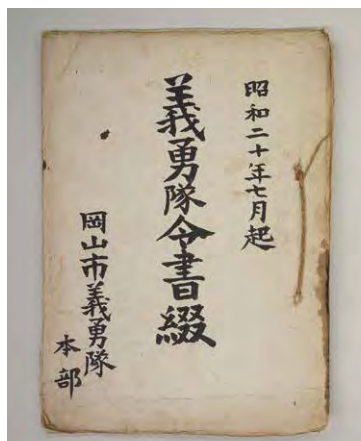 昭和二十年七月起
義勇隊令書綴
岡山市義勇隊
本部